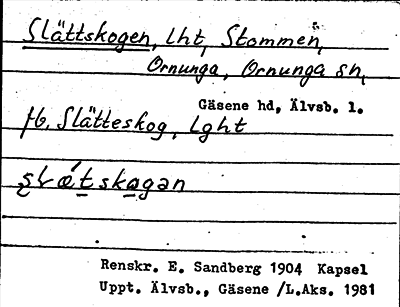 Slättskogen, lht, Stommen,
Ornunga, Ornunga sn,
Gäsene hd, Älvsb. l.
fb. Slätteskog, lght
Renskr. E. Sandberg 1904 Kapsel
Uppt. Älvsb., Gäsene /L.Aks. 1981